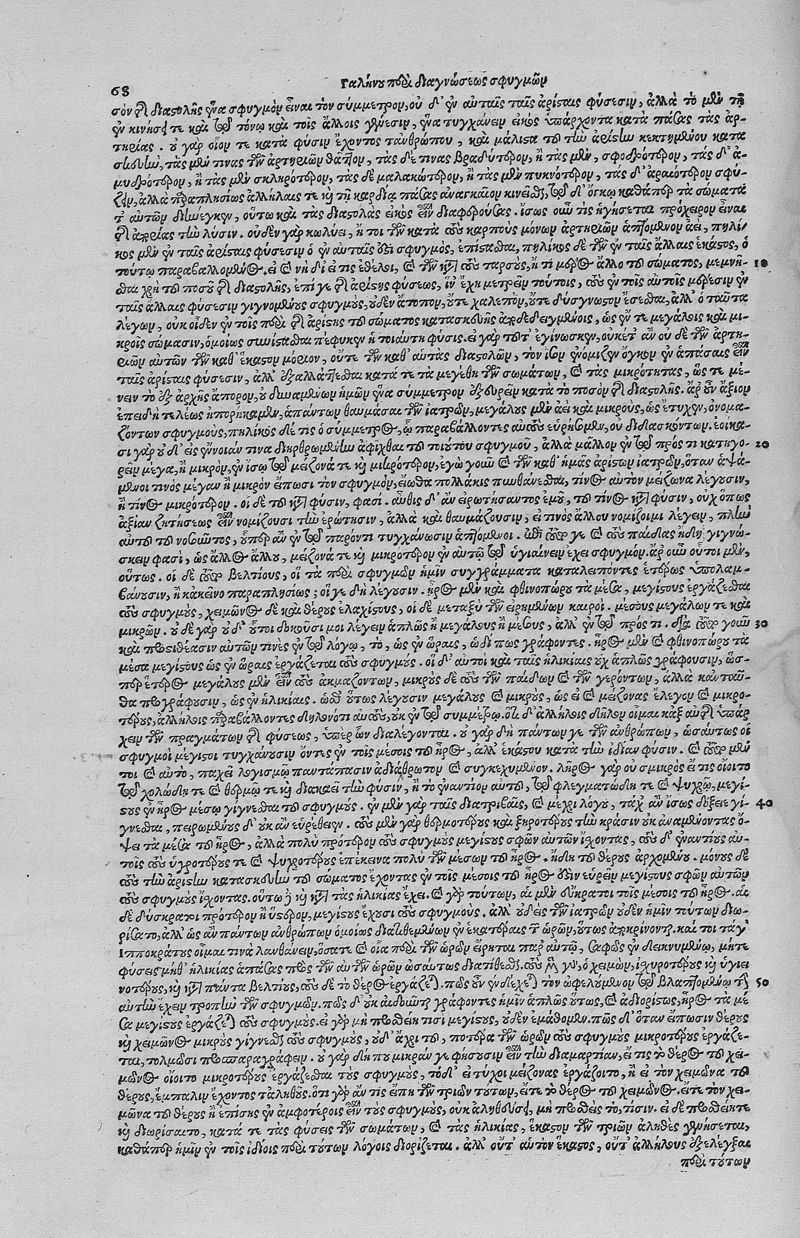 68
Γαλήνου περὶ διαγνώσεως σφυγμῶν
σον τῆς διαστολῆς ἕνα σφυγμὸν εἶναι τὸν σύμμετρον, οὐδ' ἐν αὐταῖς ταῖς ἀρίσταις φύσεσιν, ἀλλὰ τὸ μὲν τῇ
ἐν κινήσει τε καὶ τῷ τόνῳ καὶ τοῖς ἄλλοις γένεσιν, ἕνα τυγχάνειν εἰκὸς ὑπάρχοντα κατὰ πάσας τὰς ἀρ-
τηρίας. οὐ γὰρ οἷόν τε κατὰ φύσιν ἔχοντος τἀνθρώπου, καὶ μάλιστα τοῦ τὴν ἀρίστην κεκτημένου κατα
σκευὴν, τὰς μέν τινας τῶν ἀρτηριῶν θᾶττον, τὰς δέ τινας βραδύτερον, ἢ τὰς μὲν, σφοδρότερον, τὰς δ' ἀ-
μυδρότερον, ἢ τὰς μὲν σκληρότερον, τὰς δὲ μαλακώτερον, ἢ τὰς μὲν πυκνότερον, τὰς δ' ἀραιότερον σφύ-
ζειν, ἀλλὰ παραπλησίως ἀλλήλαις τε καὶ τῇ καρδίᾳ πάσας ἀναγκαῖον κινεῖσθαι, τῷ δ' ὄγκῳ καθάπερ τὰ σώματα
τ αὐτῶν διήνεγκεν, οὕτω καὶ τὰς διαστολὰς εἰκὸς εἶναι διαφερούσας. ἴσως οὖν τις ἡγήσεται πρόχειρον εἶναι
τῆς ἀπορίας τὴν λύσιν. οὐδὲν γὰρ κωλύει, ἤτοι τῶν κατὰ τοὺς καρποὺς μόνων ἀρτηριῶν ἁπτόμενον ἀεὶ, πηλί-
κος μὲν ἐν ταῖς ἀρίσταις φύσεσιν ὁ ἐν αὐταῖς ἐστι σφυγμὸς, ἐπίστασθαι, πηλίκος δὲ τῶν ἐν ταῖς ἄλλαις ἕκαστος, ὁ
τούτῳ παραβαλλόμενος. εἰ καὶ νὴ δί' εἴ τις ἐθέλοι, καὶ τῶν κατὰ τοὺς ταρσοὺς, ἤ τι μέρος ἄλλο τοῦ σώματος, μεμνῆ- 10
σθαι χρὴ τοῦ ποσοῦ τῆς διαστολῆς, ἐπί γε τῆς ἀρίστης φύσεως, ἵν' ἔχῃ μετρεῖν τούτοις, τοὺς ἐν τοῖς αὐτοῖς μέρεσιν ἐν
ταῖς ἄλλαις φύσεσιν γιγνομένους σφυγμοὺς, οὐδὲν ἄτοπον, οὔτε χαλεπὸν, οὔτε δύσγνωστον ἔσεσθαι, ἀλλ' ὁ ταῦτα
λέγων, οὐκ οἶδεν ἐν τοῖς περὶ τῆς ἀρίστης τοῦ σώματος κατασκευῆς ἀποδεδειγμένοις, ὡς ἔν τε μεγάλοις καὶ μι-
κροῖς σώμασιν, ὁμοίως συνίστασθαι πέφυκεν ἡ τοιαύτη φύσις. εἰ γὰρ τοῦτ' ἐγίνωσκεν, οὐκέτ' ἂν οὐδὲ τῶν ἀρτη-
ριῶν αὐτῶν τῶν καθ' ἕκαστον μόριον, οὔτε τῶν κατ' αὐτὰς διαστολῶν, τὸν ἴσον ἐνόμιζεν ὄγκον ἐν ἁπάσαις εἶναι
ταῖς ἀρίσταις φύσεσιν, ἀλλ' ἐξαλλάττεσθαι κατά τε τὰ μεγέθη τῶν σωμάτων, καὶ τὰς μικρότητας, ὥς τε μέ-
νειν τὸ ἐξ ἀρχῆς ἄπορον, οὐ δυναμένων ἡμῶν ἕνα σύμμετρον ἐξευρεῖν κατὰ τὸ ποσὸν τῆς διαστολῆς. ἆρ' οὖν ἄξιον
ἐπειδὴ τελέως ἠπορήκαμεν, ἁπάντων θαυμάσαι τῶν ἰατρῶν, μεγάλους μὲν ἀεὶ καὶ μικροὺς, ὡς ἔτυχεν, ὀνομα-
ζόντων σφυγμοὺς, πηλίκος δέ τις ὁ σύμμετρος, ᾧ παραβάλλοντες αὐτοὺς εὑρήσομεν, οὐ διδασκόντων. ἐοίκα-
σι γὰρ οὐδ' εἰς ἔννοιάν τινα διηρθρωμένην ἀφῖχθαι τοῦ τοιούτου σφυγμοῦ, ἀλλὰ μᾶλλον ἐν τῷ πρός τι κατηγο- 20
ρεῖν μέγα, ἢ μικρὸν, ἐν ἴσῳ τῷ μείζονά τε καὶ μικρότερον, ἐγὼ γοῦν καὶ τῶν καθ' ἡμᾶς ἀρίστων ἰατρῶν, ὅταν ἁψά-
μενοί τινος μέγαν ἢ μικρὸν εἴπωσι τὸν σφυγμὸν, εἴωθα πολλάκις πυνθάνεσθαι, τίνος αὐτὸν μείζονα λέγουσιν,
ἢ τίνος μικρότερον. οἱ δὲ τοῦ κατὰ φύσιν, φασί. αὖθις δ' ἀνερωτήσαντος ἐμοῦ, τοῦ τίνος κατὰ φύσιν, οὐχ ὅπως
ἀξίαν ζητήσεως εἶναι νομίζουσι τὴν ἐρώτησιν, ἀλλὰ καὶ θαυμάζουσιν, εἴ τινος ἄλλου νομίζοιμι λέγειν, πλὴν
αὐτοῦ τοῦ νοσοῦντος, οὗπερ ἂν ἐν τῷ παρόντι τυγχάνωσιν ἁπτόμενοι. ὅθεν γὰρ γε καὶ τοὺς παῖδας ἤδη γιγνώ-
σκειν φασὶ, ὡς ἄλλος ἄλλου, μείζονά τε καὶ μικρότερον ἐν αὐτῷ τῷ ὑγιαίνειν ἔχει σφυγμόν. ἆρ' οὖν οὗτοι μὲν,
οὕτως. οἱ δὲ τούτων βελτίους, οἱ τὰ περὶ σφυγμῶν ἡμῖν συγγράμματα καταλείποντες ἑτέρως ὑπολαμ-
βάνουσιν, ἢ κἀκεῖνοι παραπλησίως; οἵ γε δὴ λέγουσιν. ἦρος μὲν καὶ φθινοπώρου τὰ μέσα, μεγίστους ἐργάζεσθαι
τοὺς σφυγμοὺς, χειμῶνος δὲ καὶ θέρους ἐλαχίστους, οἱ δὲ μεταξὺ τῶν εἰρημένων καιροὶ. μέσους μεγάλων τε καὶ
μικρῶν. οὐδὲ γὰρ οὐδ' οὗτοι δοκοῦσί μοι λέγειν ἁπλῶς ἢ μεγάλους ἢ μέσους, ἀλλ' ἐν τῷ πρός τι. διὰ τοῦτο γοῦν 30
καὶ προστιθέασιν αὐτῶν τινες ἐν τῷ λόγῳ, τὸ, ὡς ἐν ὥραις, ὡδί πως γράφοντες. ἦρος μὲν καὶ φθινοπώρου τὰ
μέσα μεγίστους ὡς ἐν ὥραις ἐργάζεται τοὺς σφυγμούς. οἱ δ' αὐτοὶ καὶ ταῖς ἡλικίαις οὐχ ἁπλῶς γράφουσιν, ὥσ-
περ ἕτερος μεγάλους μὲν εἶναι τοὺς ἀκμαζόντων, μικροὺς δὲ τοὺς τῶν παίδων καὶ τῶν γερόντων, ἀλλὰ κἀνταῦ-
θα προσγράφουσιν, ὡς ἐν ἡλικίαις. ὧδ' οὕτως λέγουσιν μεγάλους καὶ μικροὺς, ὡς εἰ καὶ μείζονας ἔλεγον καὶ μικρο-
τέρους, ἀλλήλοις παραβάλλοντες δηλονότι αὐτοὺς, οὐκ ἐν τῷ συμμέτρῳ. ὅτι δ' ἀλλήλοις δῆλον οἶμαι κἀξ αὐτῆς ὑπάρ
χειν τῶν πραγμάτων τῆς φύσεως, ὑπὲρ ὧν διαλέγονται. οὐ γὰρ δὴ πάντων γε τῶν ἀνθρώπων, ὡσαύτως οἱ
σφυγμοὶ μέγιστοι τυγχάνουσιν ὄντες ἐν τοῖς μέσοις τοῦ ἦρος, ἀλλ' ἑκάστου κατὰ τὴν ἰδίαν φύσιν. καὶ τοῦτο μέν
τοι καὶ αὐτὸ, πάσχει λογισμῷ παντάπασιν ἀδιάρθρωτον καὶ συγκεχυμένον. λῆρος γὰρ οὐ σμικρὸς εἴ τις οἴοιτο
τῷ χολώδη τε καὶ θερμῷ τε καὶ διακαεῖ τὴν φύσιν, ἢ τὸ ἐναντίον αὐτοῦ, τῷ φλεγματώδη τε καὶ ψυχρῷ, μεγί-
στους ἐν ἦρος μέσῳ γίγνεσθαι τοὺς σφυγμούς. ἐν μὲν γὰρ ταῖς διατριβαῖς, καὶ μέχρι λόγου, τάχ' ἂν ἴσως δόξειε γί- 40
γνεσθαι, πειρωμένους δ' οὐκ ἂν εὑρεθεῖεν. τοὺς μὲν γὰρ θερμοτέρους καὶ ξηροτέρους τὴν κρᾶσιν οὐκ ἀναμένοντας ὄ-
ψει τὰ μέσα τοῦ ἦρος, ἀλλὰ πολὺ πρότερον τοὺς σφυγμοὺς μεγίστους σφῶν αὐτῶν ἴσχοντας, τοὺς δ' ἐναντίους αὐ-
τοῖς τοὺς ὑγροτέρους τε καὶ ψυχροτέρους ἐπέκεινα πολὺ τῶν μέσων τοῦ ἦρος. ἤδη τοῦ θέρους ἀρχομένου. μόνους δὲ
τοὺς τὴν ἀρίστην κατασκευὴν τοῦ σώματος ἔχοντας ἐν τοῖς μέσοις τοῦ ἦρος ἔστιν εὑρεῖν μεγίστους σφῶν αὐτῶν
τοὺς σφυγμοὺς ἴσχοντας. οὕτω δὲ καὶ κατὰ τὰς ἡλικίας ἔχει. καὶ γὰρ τούτων, αἱ μὲν εὔκρατοι τοῖς μέσοις τοῦ ἦρος. αἱ
δὲ δύσκρατοι πρότερον ἢ ὕστερον, μεγίστους ἔχουσι τοὺς σφυγμούς. ἀλλ' οὐδεὶς τῶν ἰατρῶν οὐδὲν ἡμῖν τούτων διω-
ρίσατο, ἀλλ' ὡς ἂν πάντων ἀνθρώπων ὁμοίως διατιθεμένων ἐν ἑκατέραις τῶν ὡρῶν, οὕτως ἀπεκρίνοντο. καί τοι τά γ'
Ἱπποκράτους οἶμαί τινα λανθάνειν, ὅσα τε καὶ οἷα περὶ τῶν ὡρῶν εἴρηται παρ' αὐτῷ, σαφῶς ἐνδεικνυμένῳ, μήτε
φύσεις μήθ' ἡλικίας ἁπάσας πρὸς τῶν αὐτῶν ὡρῶν ὡσαύτως διατίθεσθαι. τοὺς μὲν γὰρ, ὁ χειμὼν, ἰσχυροτέρους καὶ ὑγιει
νοτέρους, καὶ κατὰ πάντα βελτίους, τοὺς δὲ τὸ θέρος ἐργάζεται. πῶς οὖν ἐνδέχεται τὸν ὠφελούμενον τῷ βλαπτομένῳ τὴν 50
αὐτὴν ἔχειν τροπὴν τῶν σφυγμῶν. πῶς δ' οὐκ αἰδοῦνται γράφοντες ἡμῖν ἁπλῶς οὕτως, καὶ ἀδιορίστως, ἦρος τὰ μέ-
σα μεγίστους ἐργάζεται τοὺς σφυγμούς. εἰ γὰρ μὴ προσθείη τισὶ μεγίστους, οὐδὲν ἐμάθομεν. πῶς δ' ὅταν εἴπωσιν θέρους
καὶ χειμῶνος μικροὺς γίγνεσθαι τοὺς σφυγμοὺς, οὐδ' ἄχρι τοῦ, πότερα τῶν ὡρῶν τοὺς σφυγμοὺς μικροτέρους ἐργάζε-
ται, τολμῶσι προσπαραγράφειν. οὐ γὰρ δήπου μικράν γε φήσουσιν εἶναι τὴν διαμαρτίαν, εἴ τις τὸ θέρος τοῦ χει-
μῶνος οἴοιτο μικροτέρους ἐργάζεσθαι τοὺς σφυγμοὺς, τὸ δ' εἰ τύχοι μείζονας ἐργάζοιτο, ἢ εἰ τὸν χειμῶνα τοῦ
θέρους, ἔμπαλιν ἔχοντος τἀληθοῦς. ὅτι γὰρ ἄν τις εἴπῃ τῶν τριῶν τούτων, εἴτε τὸ θέρος τοῦ χειμῶνος. εἴτε τὸν χει-
μῶνα τοῦ θέρους ἢ ἐπίσης ἐν ἀμφοτέροις εἶναι τοὺς σφυγμοὺς, οὐκ ἀληθεύσει, μὴ προσθεὶς τὸ, τίσιν. εἰ δὲ προσθείη τε
καὶ διωρίσαιτο, κατά τε τὰς φύσεις τῶν σωμάτων, καὶ τὰς ἡλικίας, ἕκαστον τῶν τριῶν ἀληθὲς γενήσεται,
καθάπερ ἡμῖν ἐν τοῖς ἰδίοις περὶ τούτων λόγοις διορίζεται. ἀλλ' οὔτ' αὐτὸν ἕκαστος, οὔτ' ἀλλήλους ἐξελέγξαι
περὶ τούτων